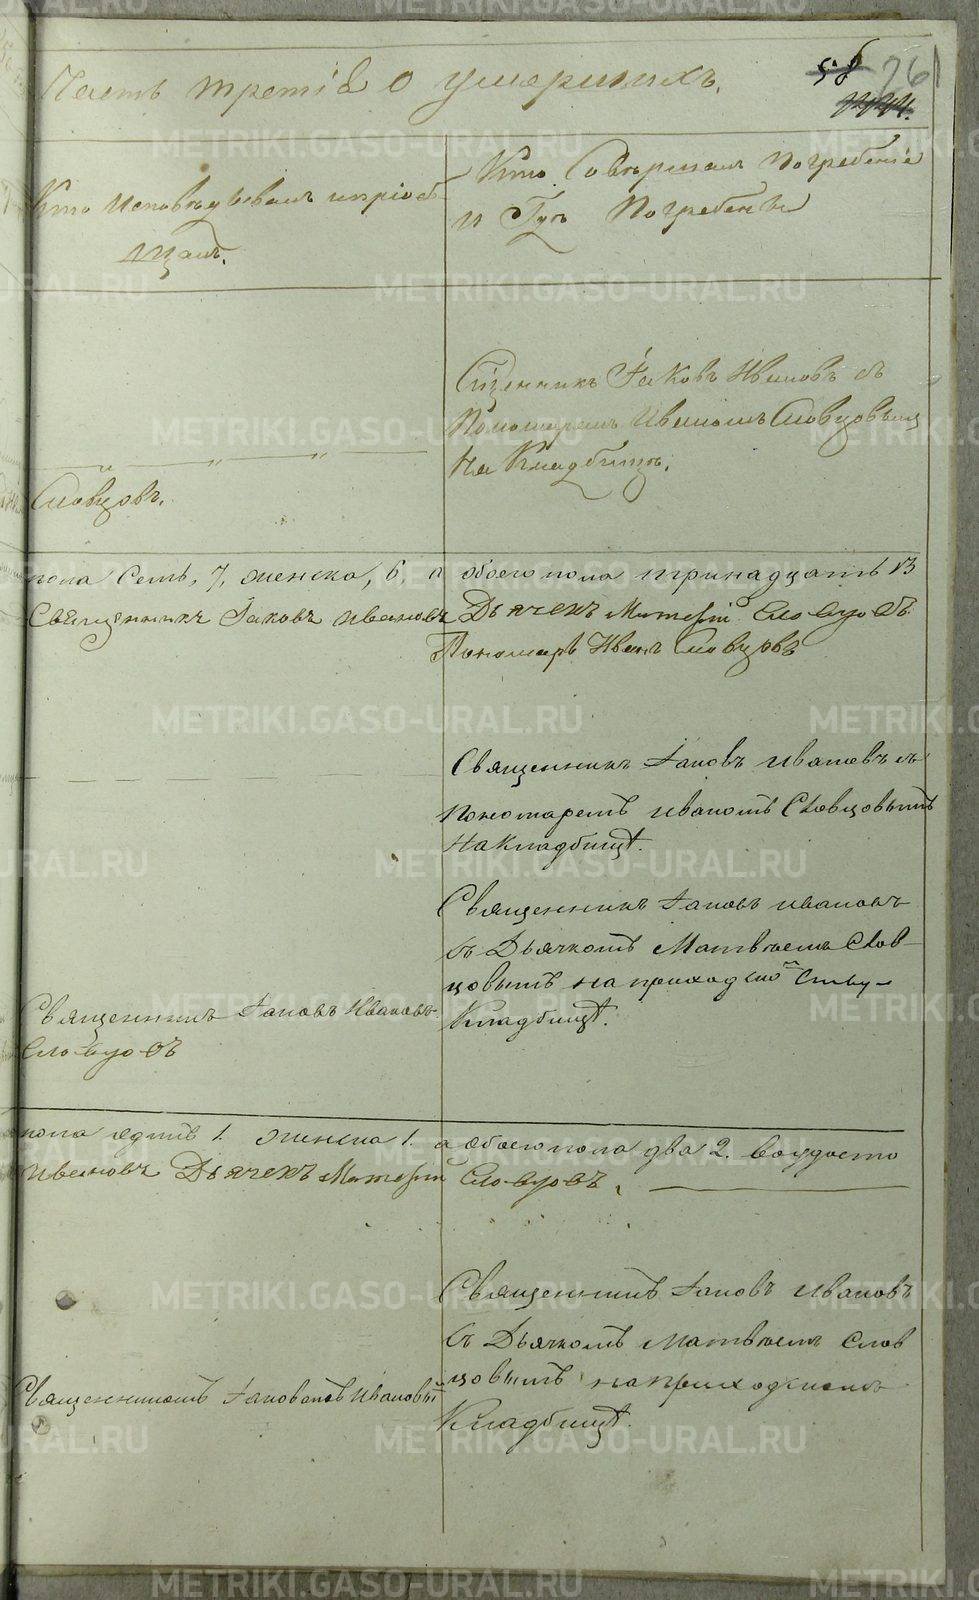 Часть третія о умершихъ.
58 76
Кто исповѣдывалъ и пріоб-
щалъ.
Кто Совершалъ Погребеніе
и Гдѣ Погребены
Сщенникъ Іаковъ Ивановъ съ
Пономаремъ Иваномъ Словцовымъ
На Кладбищѣ.
Словцовъ.
пола Семь, 7, женска, 6, а обоего пола тринадцать 13
Священникъ Іаковъ Ивановъ Дьячекъ Матвѣй Словцовъ
Пономарь Иванъ Словцовъ
Священникъ Іаковъ Ивановъ съ
Пономаремъ Иваномъ Словцовымъ
На Кладбищѣ.
Священникъ Іаковъ Ивановъ
съ Дьячкомъ Матвѣемъ Слов-
цовымъ на приходскомъ
Кладбищѣ.
Священникъ Іаковъ Ивановъ
Словцовъ
пола Одинъ 1. женска 1. а обоего пола два 2.
Ивановъ Дьячекъ Матвѣй Словцовъ.
Священникъ Іаковъ Ивановъ
съ Дьячкомъ Матвѣемъ Слов
цовымъ на приходскомъ
Кладбищѣ.
Священникомъ Іаковомъ Ивановым
METRIKI.GASO-URAL.RU